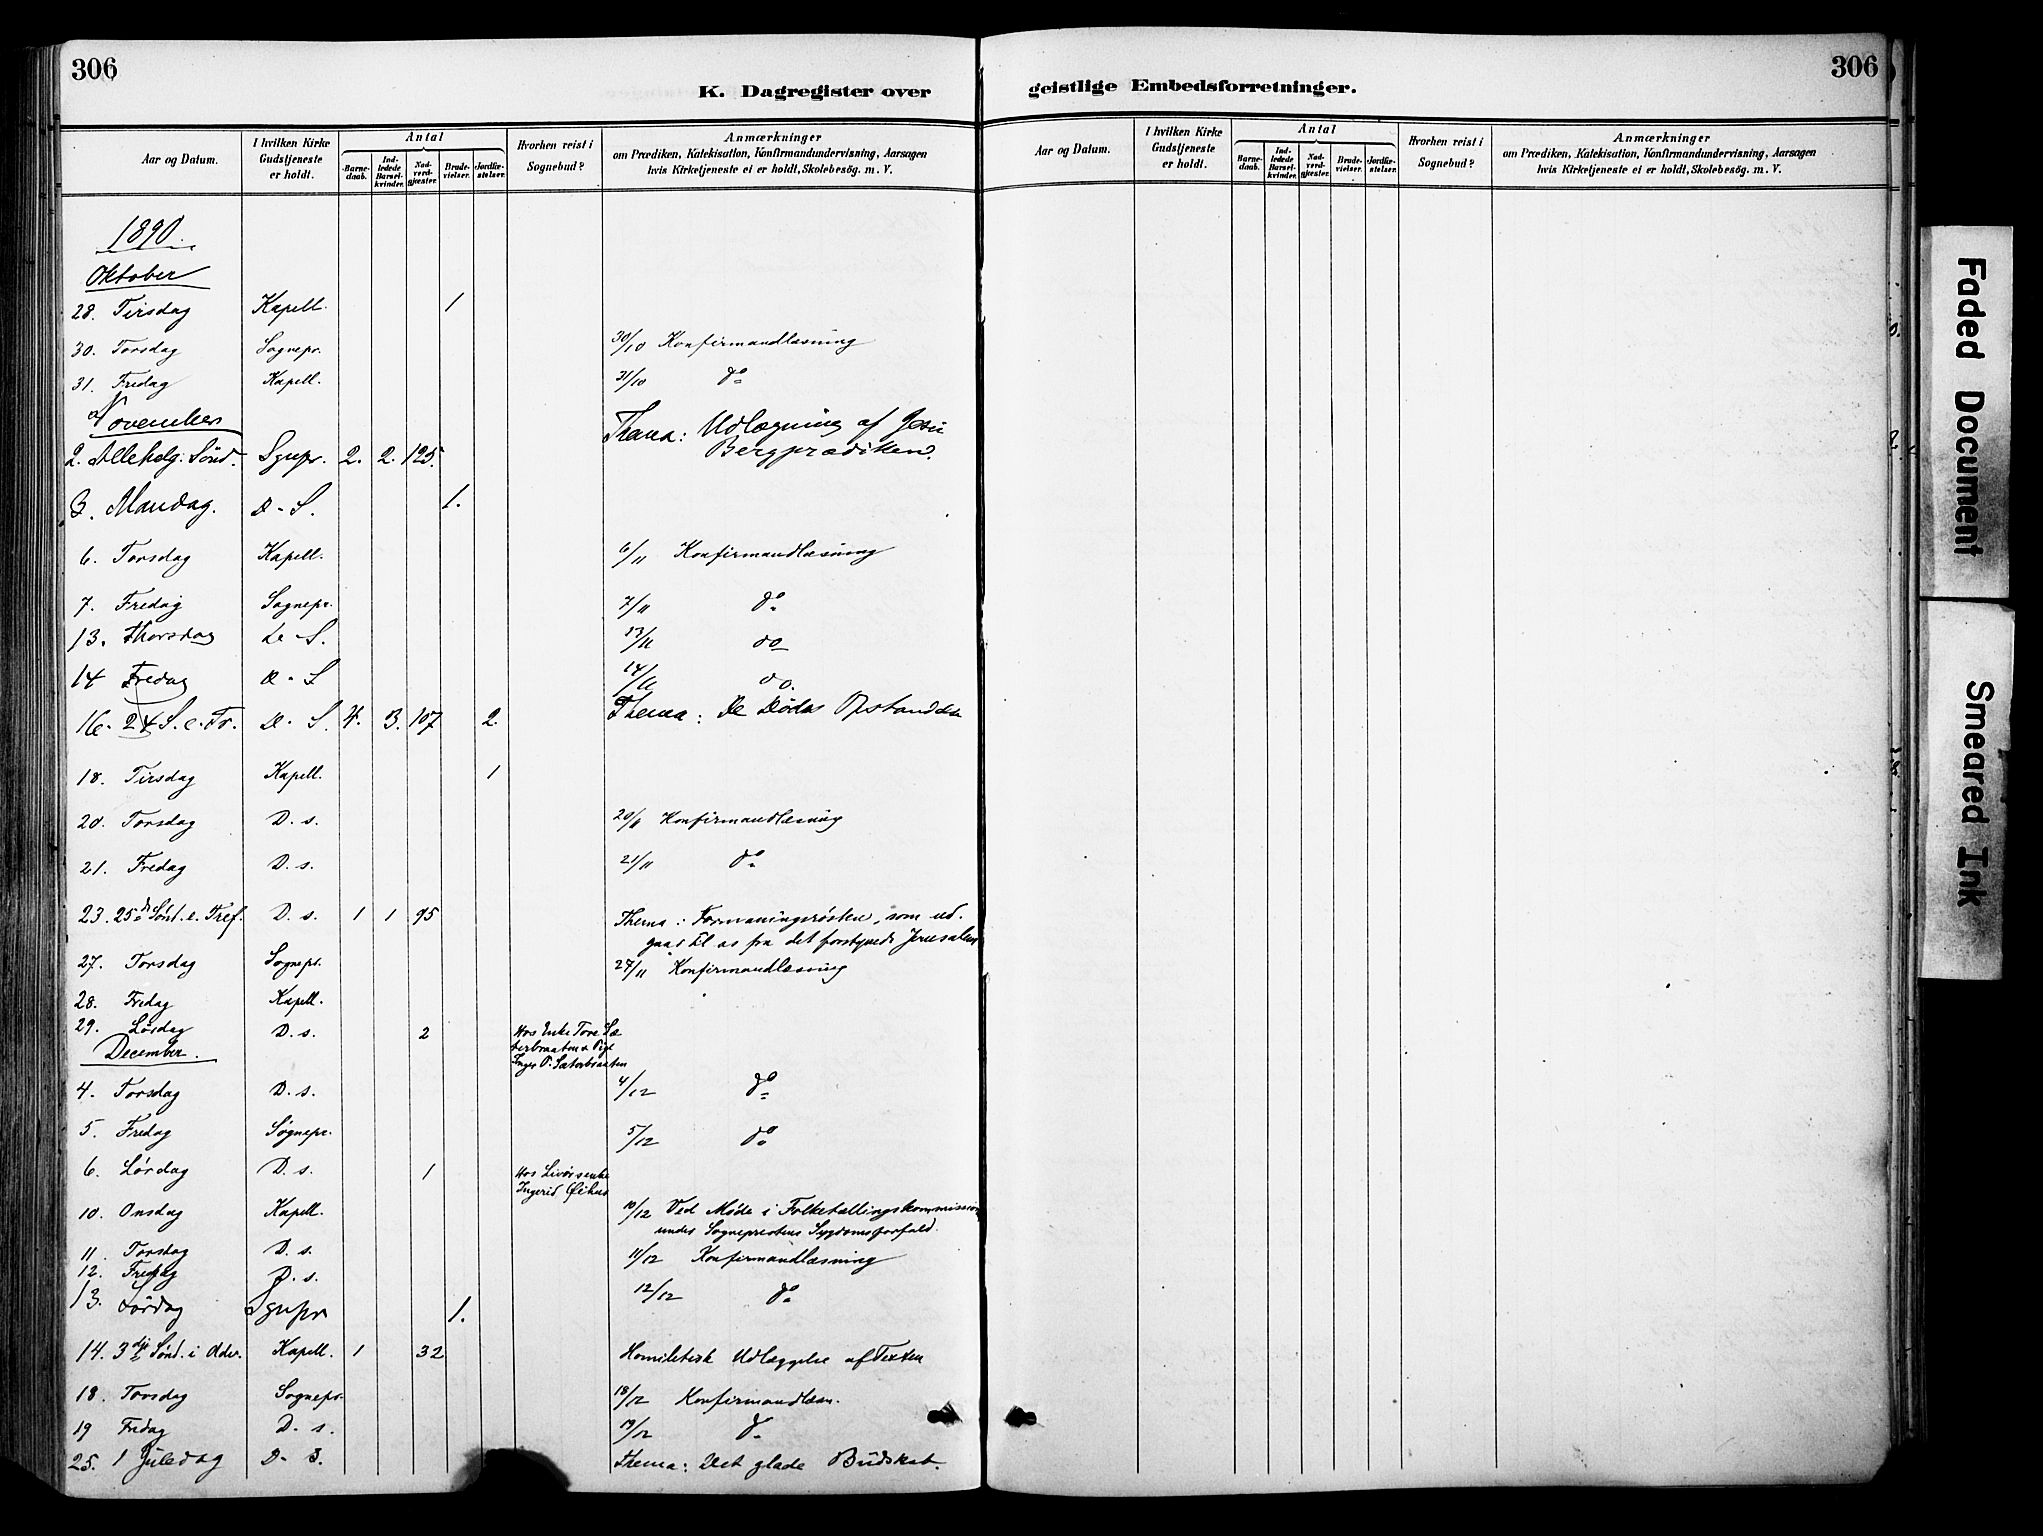 306
K. Dagregister over
Aar og Datum.
I hvilken Kirke Gudstjeneste er holdt.
Antal
Barnedaab.
Indledede Barselkvinder.
Nadverdgjæster.
Brudevielser.
Jordfæstelser.
Hvorhen reist i Sognebud?
Anmærkninger
om Prædiken, Katekisation, Konfirmandundervisning, Aarsagen
hvis Kirketjeneste ei er holdt, Skolebesøg. m. V.
1890.
Oktober
28. Tirsdag Kapell. 1
30. Torsdag Sognepr. 30/10 Konfirmandlæsning
31. Fredag Kapell. 31/10 do
November
Thema: Udlægning af Jesu
2. Allehelg. Sönd. Sgnpr. 2. 2. 125. Bergprædiken.
3. Mandag. D-S. 1.
6. Torsdag Kapell. 6/11 Konfirmandlæsning
7. Fredag Sognepr. 7/11 do
13. Thorsdag De-S. 13/11 do
14 Fredag D-S 14/11 do.
16. 24 S. e. Tr. D-S. 4. 3. 107 2. Thema: De Dödes Opstandelse
18. Tirsdag Kapell. 1
20. Torsdag D. s. 20/11 Konfirmandlæsning
21. Fredag D. s. 21/11 do
23. 25de Sönd. e. Tref. D. s. 1 1 95 Thema: Formaningsrösten, som ud-
gaar til os fra det forstyrrede Jerusalem
27. Torsdag Sognepr. 27/11 Konfirmandlæsning
28. Fredag Kapell.
29. Lördag D. s. 2 Hos Enke Tore Sæ
terbraaten & Pige
Inger P. Sæterbraaten
December.
4. Torsdag D. s. 4/12 do
5. Fredag Sognepr. 5/12 do
6. Lördag D. s. 1 Hos Livörsenke
Ingerid Öihus
10. Onsdag Kapell. 10/12 Ved Möde i Folketællingskommission
under Sogneprestens Sygdomsforfald.
11. Torsdag D. s. 11/12 Konfirmandlæsning
12. Fredag D. s. 12/12 do
13. Lördag Sgnpr 1.
14. 3die Sönd. i Adv. Kapell. 1 32 Homiletisk Udlæggelse af Texten
18. Torsdag Sognepr. 18/12 Konfirmandlæsn.
19 Fredag D. s. 19/12 do
25. 1 Juledag D-S. Thema: Det glade Budskab.
geistlige Embedsforretninger.
306
Aar og Datum.
I hvilken Kirke Gudstjeneste er holdt.
Antal
Barnedaab.
Indledede Barselkvinder.
Nadverdgjæster.
Brudevielser.
Jordfæstelser.
Hvorhen reist i Sognebud?
Anmærkninger
om Prædiken, Katekisation, Konfirmandundervisning, Aarsagen
hvis Kirketjeneste ei er holdt, Skolebesög. m. V.
Faded Document
Smeared Ink